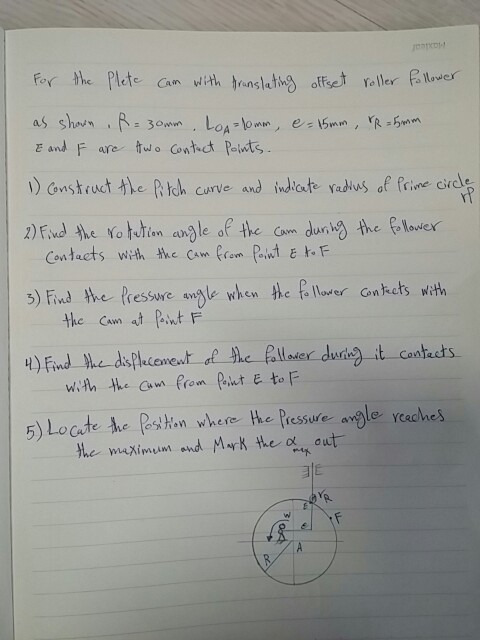 For the Plete cam with translating offset roller follower
as shown, R = 30mm, LOA = 10mm, e = 15mm, rR = 5mm
E and F are two contact Points.
1) Construct the Pitch curve and indicate radius of Prime circle
rp
2) Find the rotation angle of the cam during the follower
Contacts with the cam from Point E to F
3) Find the Pressure angle when the follower contacts with
the cam at Point F
4) Find the displacement of the follower during it contacts
with the cam from Point E to F
5) Locate the Position where the Pressure angle reaches
the maximum and Mark the α max out
E rR
w F
e
R A